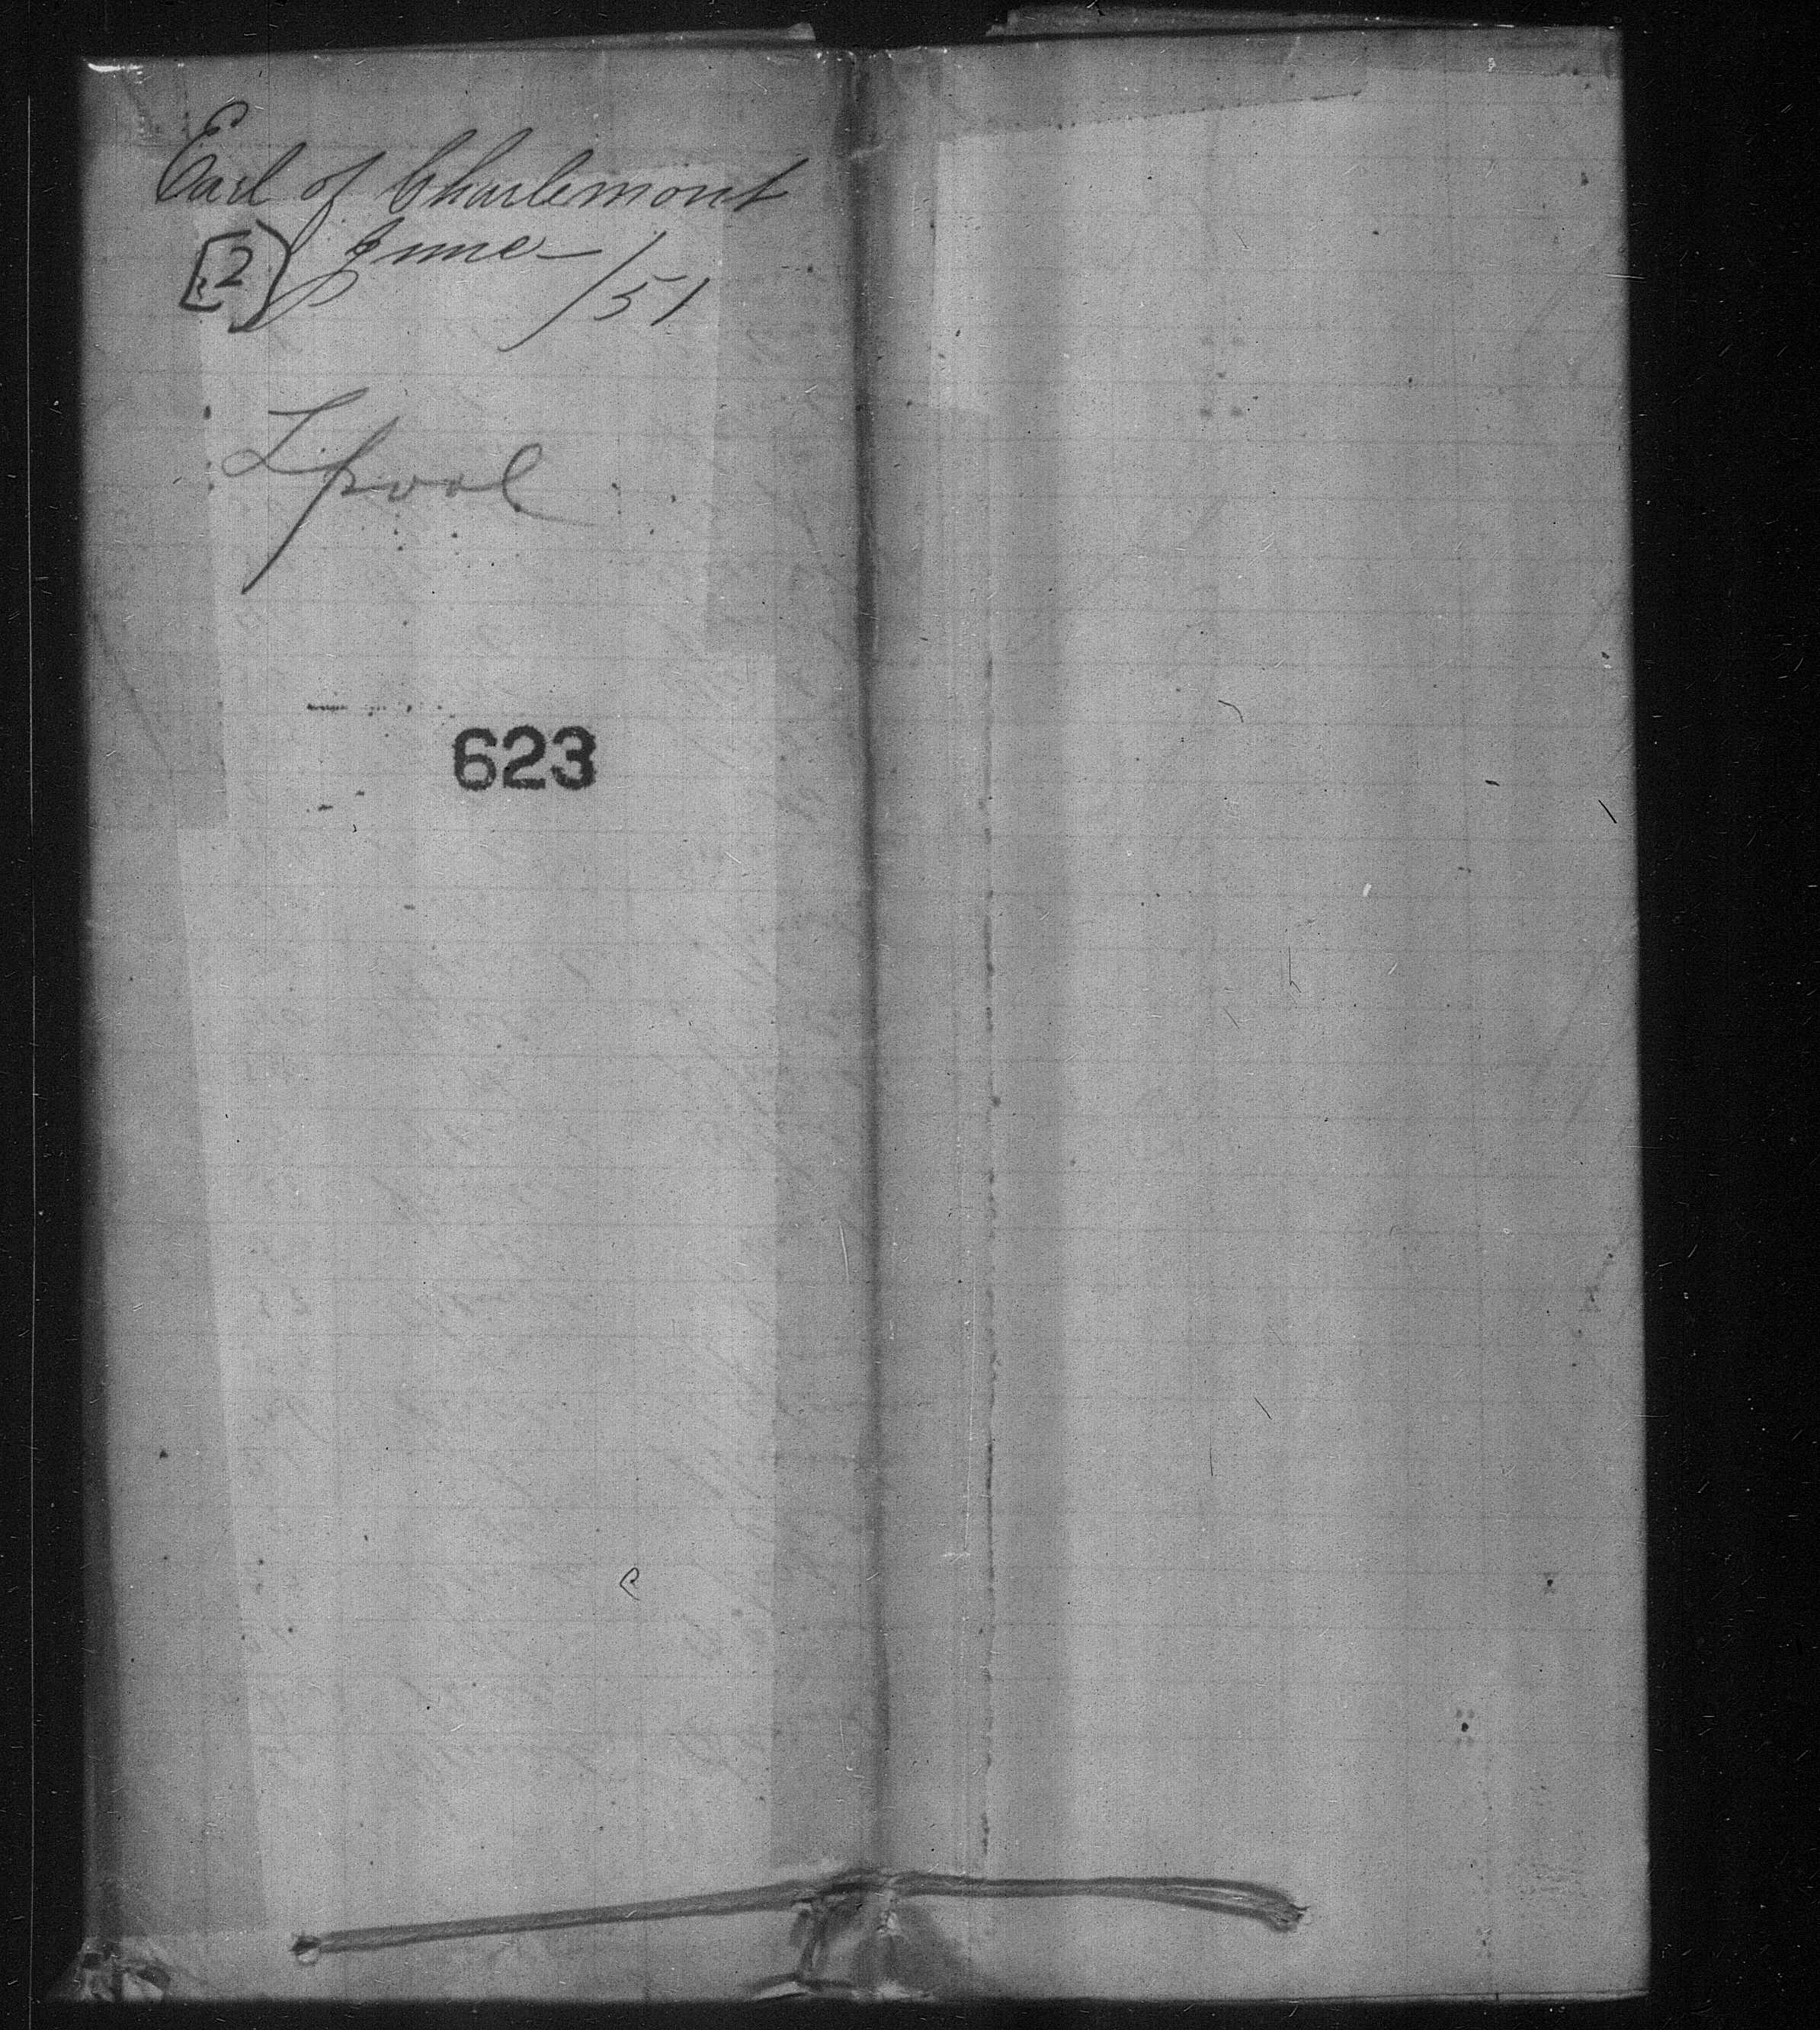 Earl of Charlemont
[2] June /51
Lpool
623